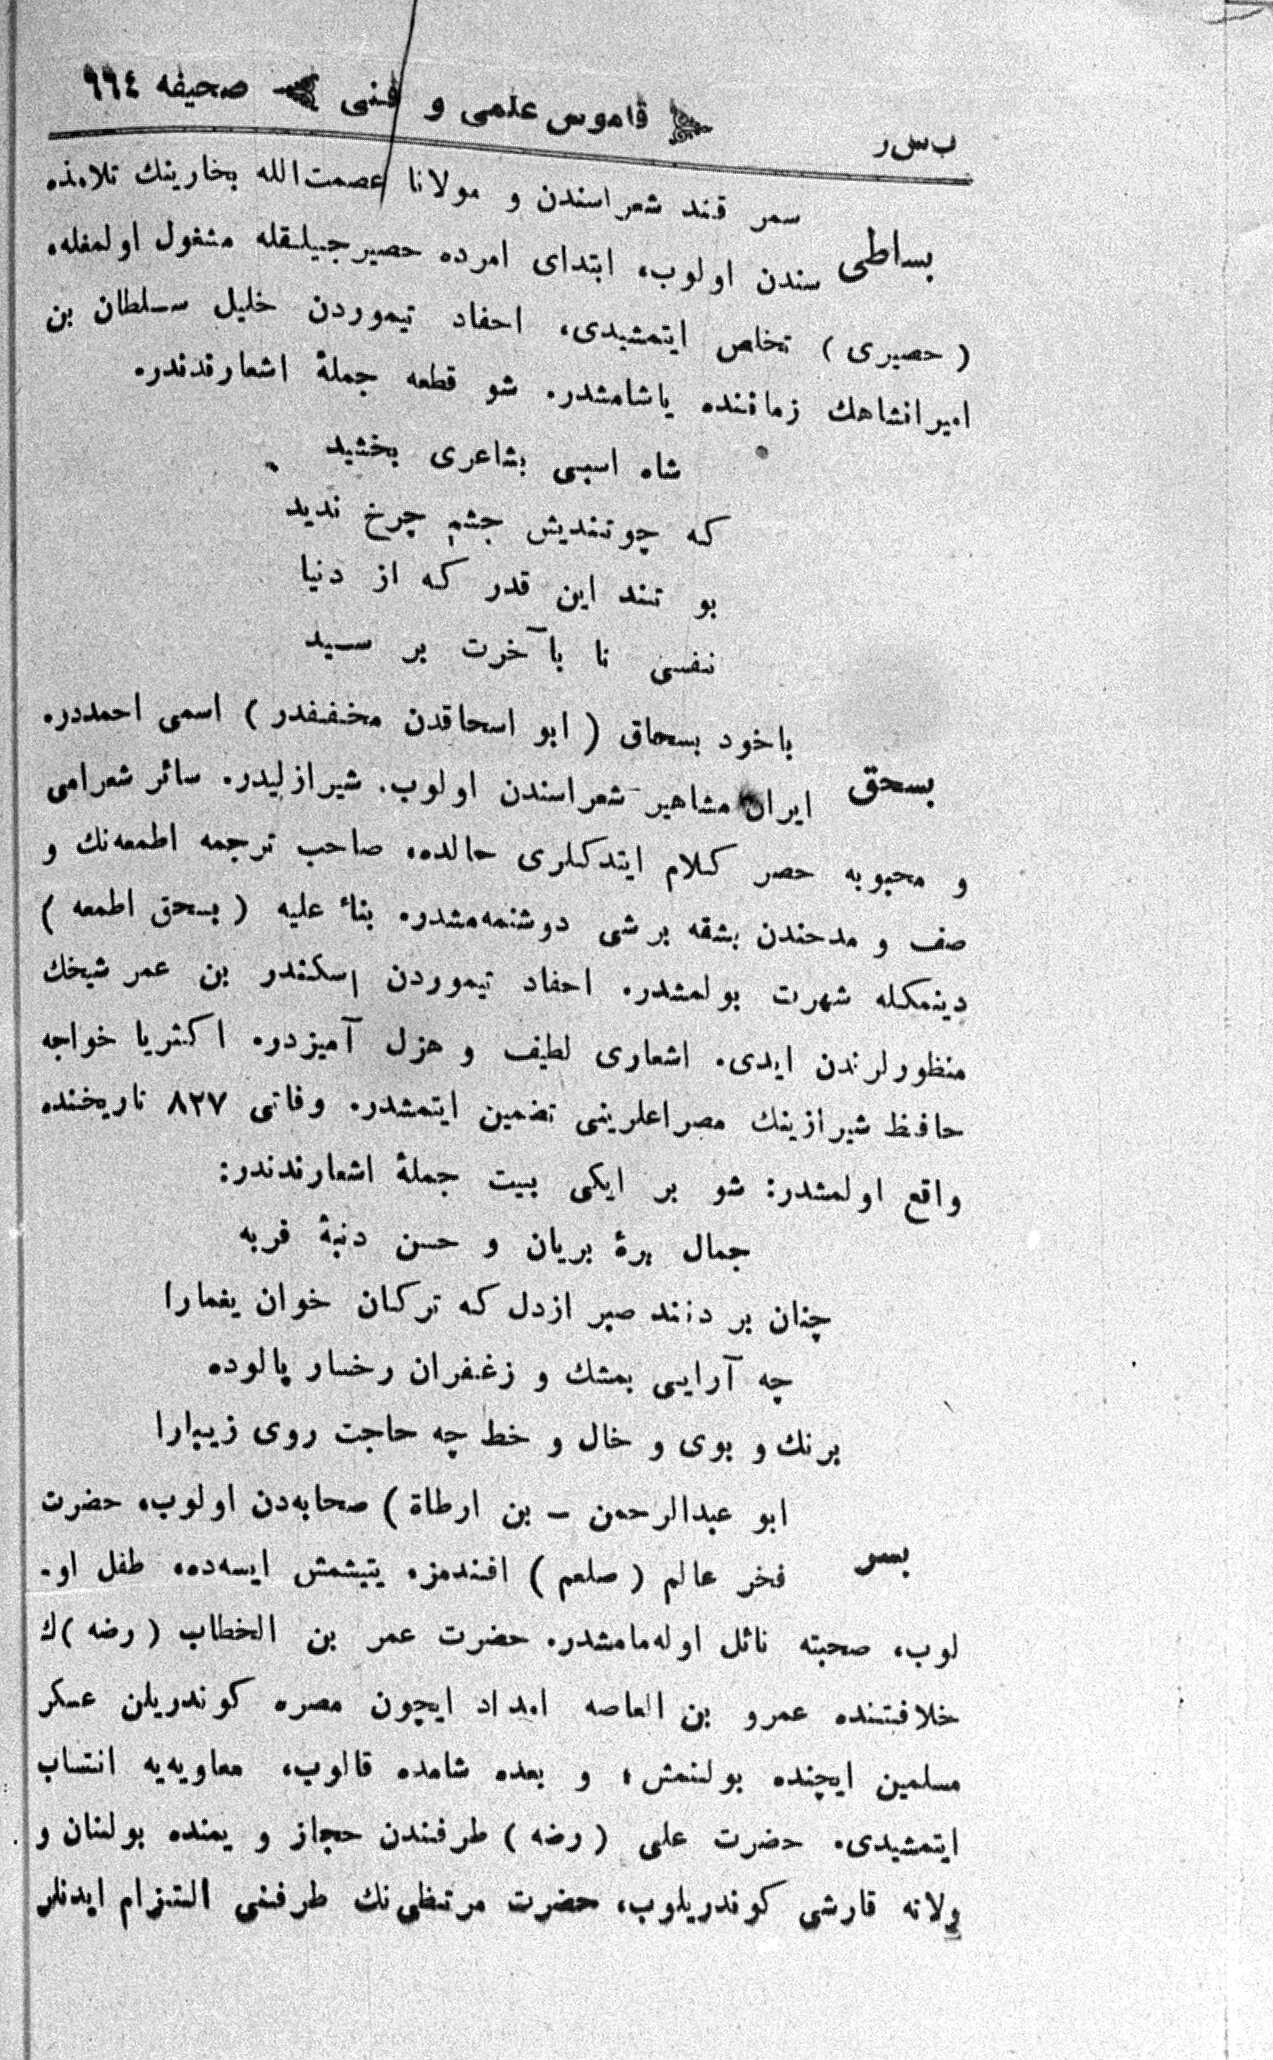 ب‌س‌ر قاموس علمی و فنی صحیفه ٩٦٤
بساطی
سمر قند شعراسندن و مولانا عصمت‌الله بخارینك تلامذه
سندن اولوب، ابتدای امرده حصیرجیلقله مشغول اولمغله،
( حصیری ) تخلص ایتمشیدی، احفاد تیموردن خلیل سلطان بن
امیرانشاهك زماننده یاشامشدر. شو قطعه جملهٔ اشعارندندر.
شاه اسبی بشاعری بخشید
که چوتندیش جشم چرخ ندید
بو تند این قدر که از دنیا
نفسی تا بآخرت بر سید
بسحق
یاخود بسحاق ( ابو اسحاقدن مخففدر ) اسمی احمددر.
ایران مشاهیر شعراسندن اولوب. شیرازلیدر. سائر شعرا می
و محبوبه حصر کلام ایتدکلری حالده، صاحب ترجمه اطمعه‌نك و
صف و مدحندن بشقه برشی دوشنمه‌مشدر. بناءً علیه ( بسحق اطمعه )
دینمکله شهرت بولمشدر. احفاد تیموردن اسکندر بن عمر شیخك
منظورلرندن ایدی. اشعاری لطیف و هزل آمیزدر. اکثریا خواجه
حافظ شیرازینك مصراعلرینی تضمین ایتمشدر. وفاتی ٨٢٧ تاریخنده
واقع اولمشدر: شو بر ایکی بیت جملهٔ اشعارندندر:
جمال برهٔ بریان و حسن دنبهٔ فربه
چنان بر دنند صبر ازدل که ترکان خوان یغمارا
چه آرایی بمشك و زغفران رخسار پالوده
برنك و بوی و خال و خط چه حاجت روی زیبارا
بسر
ابو عبدالرحمن – بن ارطاة ) صحابه‌دن اولوب، حضرت
فخر عالم ( صلعم ) افندمزه یتیشمش ایسه‌ده، طفل او.
لوب، صحبته نائل اوله‌مامشدر. حضرت عمر بن الخطاب ( رضه )ك
خلافتنده عمرو بن العاصه امداد ایچون مصره کوندریلن عسکر
مسلمین ایچنده بولنمش، و بعده شامده قالوب، معاویه‌یه انتساب
ایتمشیدی. حضرت علی ( رضه ) طرفندن حجاز و یمنده بولنان و
ولاته قارشی کوندریلوب، حضرت مرتظی‌نك طرفنی التزام ایدنلر